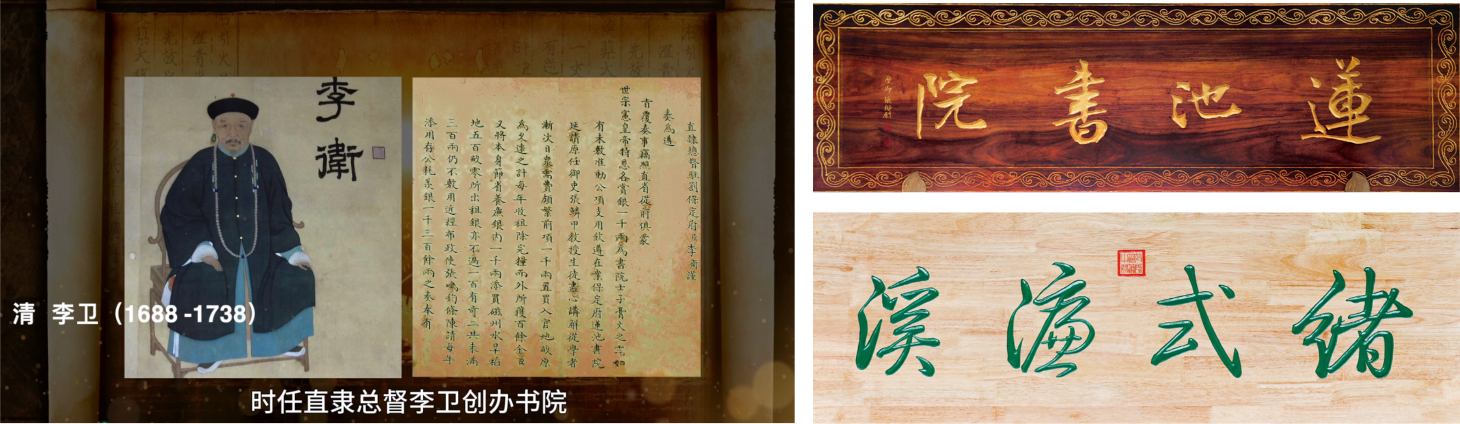 李衛
直隸總督駐劄保定府臣李衛謹
奏為遵
旨覆奏事竊照直省從前俱蒙
世宗憲皇帝特恩各賞銀一千兩為書院士子膏火之需如
有未敷准動公項支用欽遵在案保定府蓮池書院
延請原任御史張鱗甲教授生徒盡心講解從學者
漸次日眾需費頗繁前項一千兩置買入官地畝原
為久遠之計每年收租除完糧而外所獲百餘金臣
又將本身節省養廉銀內一千兩添買磁州水旱稻
地五百畝零所出租銀亦不過一百有奇二共未滿
三百兩仍不敷用近經布政使張鳴鈞條陳請每年
添用存公耗羡銀一千三百餘兩之奏奉有
清 李卫（1688 -1738）
时任直隶总督李卫创办书院
蓮池書院
緒式濂溪